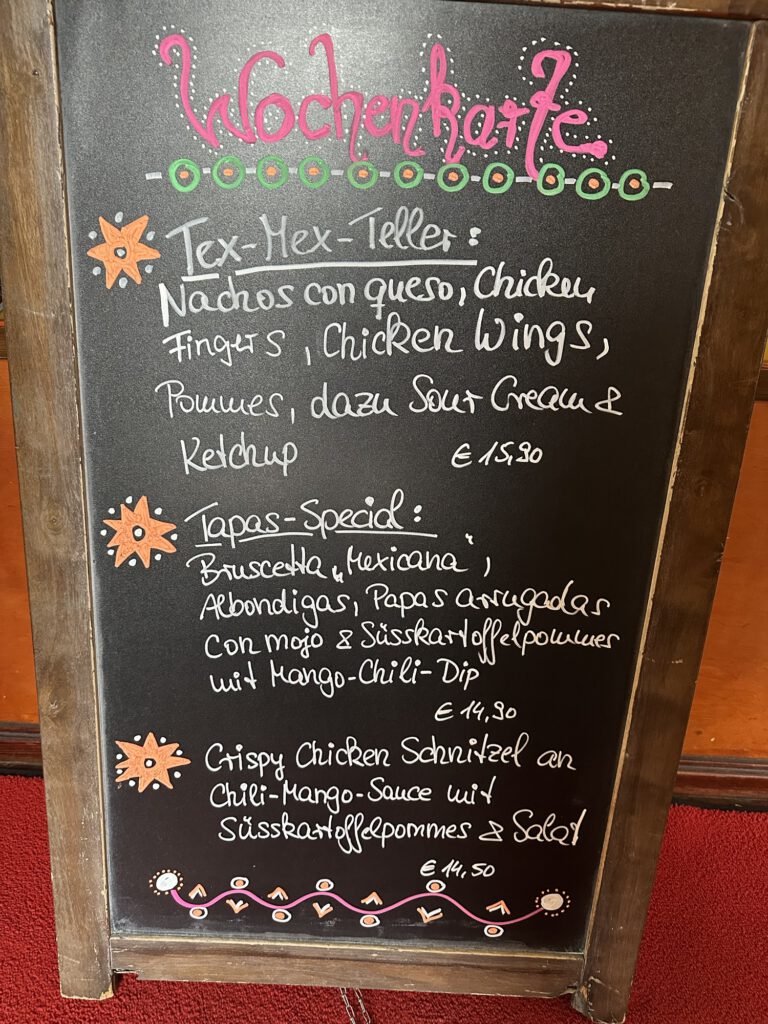 Wochenkarte
Tex-Mex-Teller:
Nachos con queso, Chicken
Fingers, Chicken Wings,
Pommes, dazu Sour Cream &
Ketchup € 15,90
Tapas-Special:
Bruscetta „Mexicana“,
Albondigas, Papas arrugadas
con mojo & Süsskartoffelpommes
mit Mango-Chili-Dip
€ 14,90
Crispy Chicken Schnitzel an
Chili-Mango-Sauce mit
Süsskartoffelpommes & Salat
€ 14,50